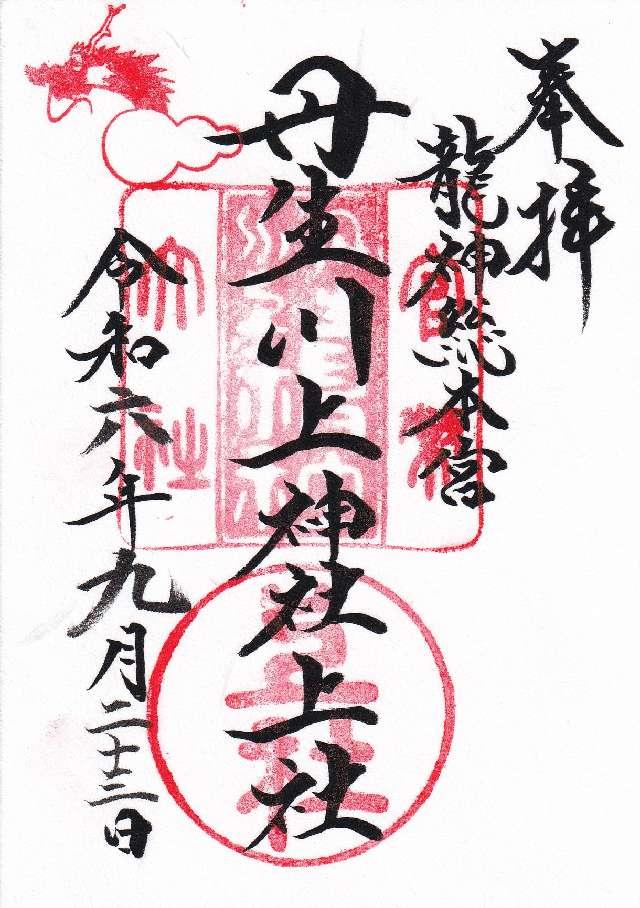 奉拝
龍神総本宮
丹生川上神社上社
令和六年九月二十三日
官幣
大社